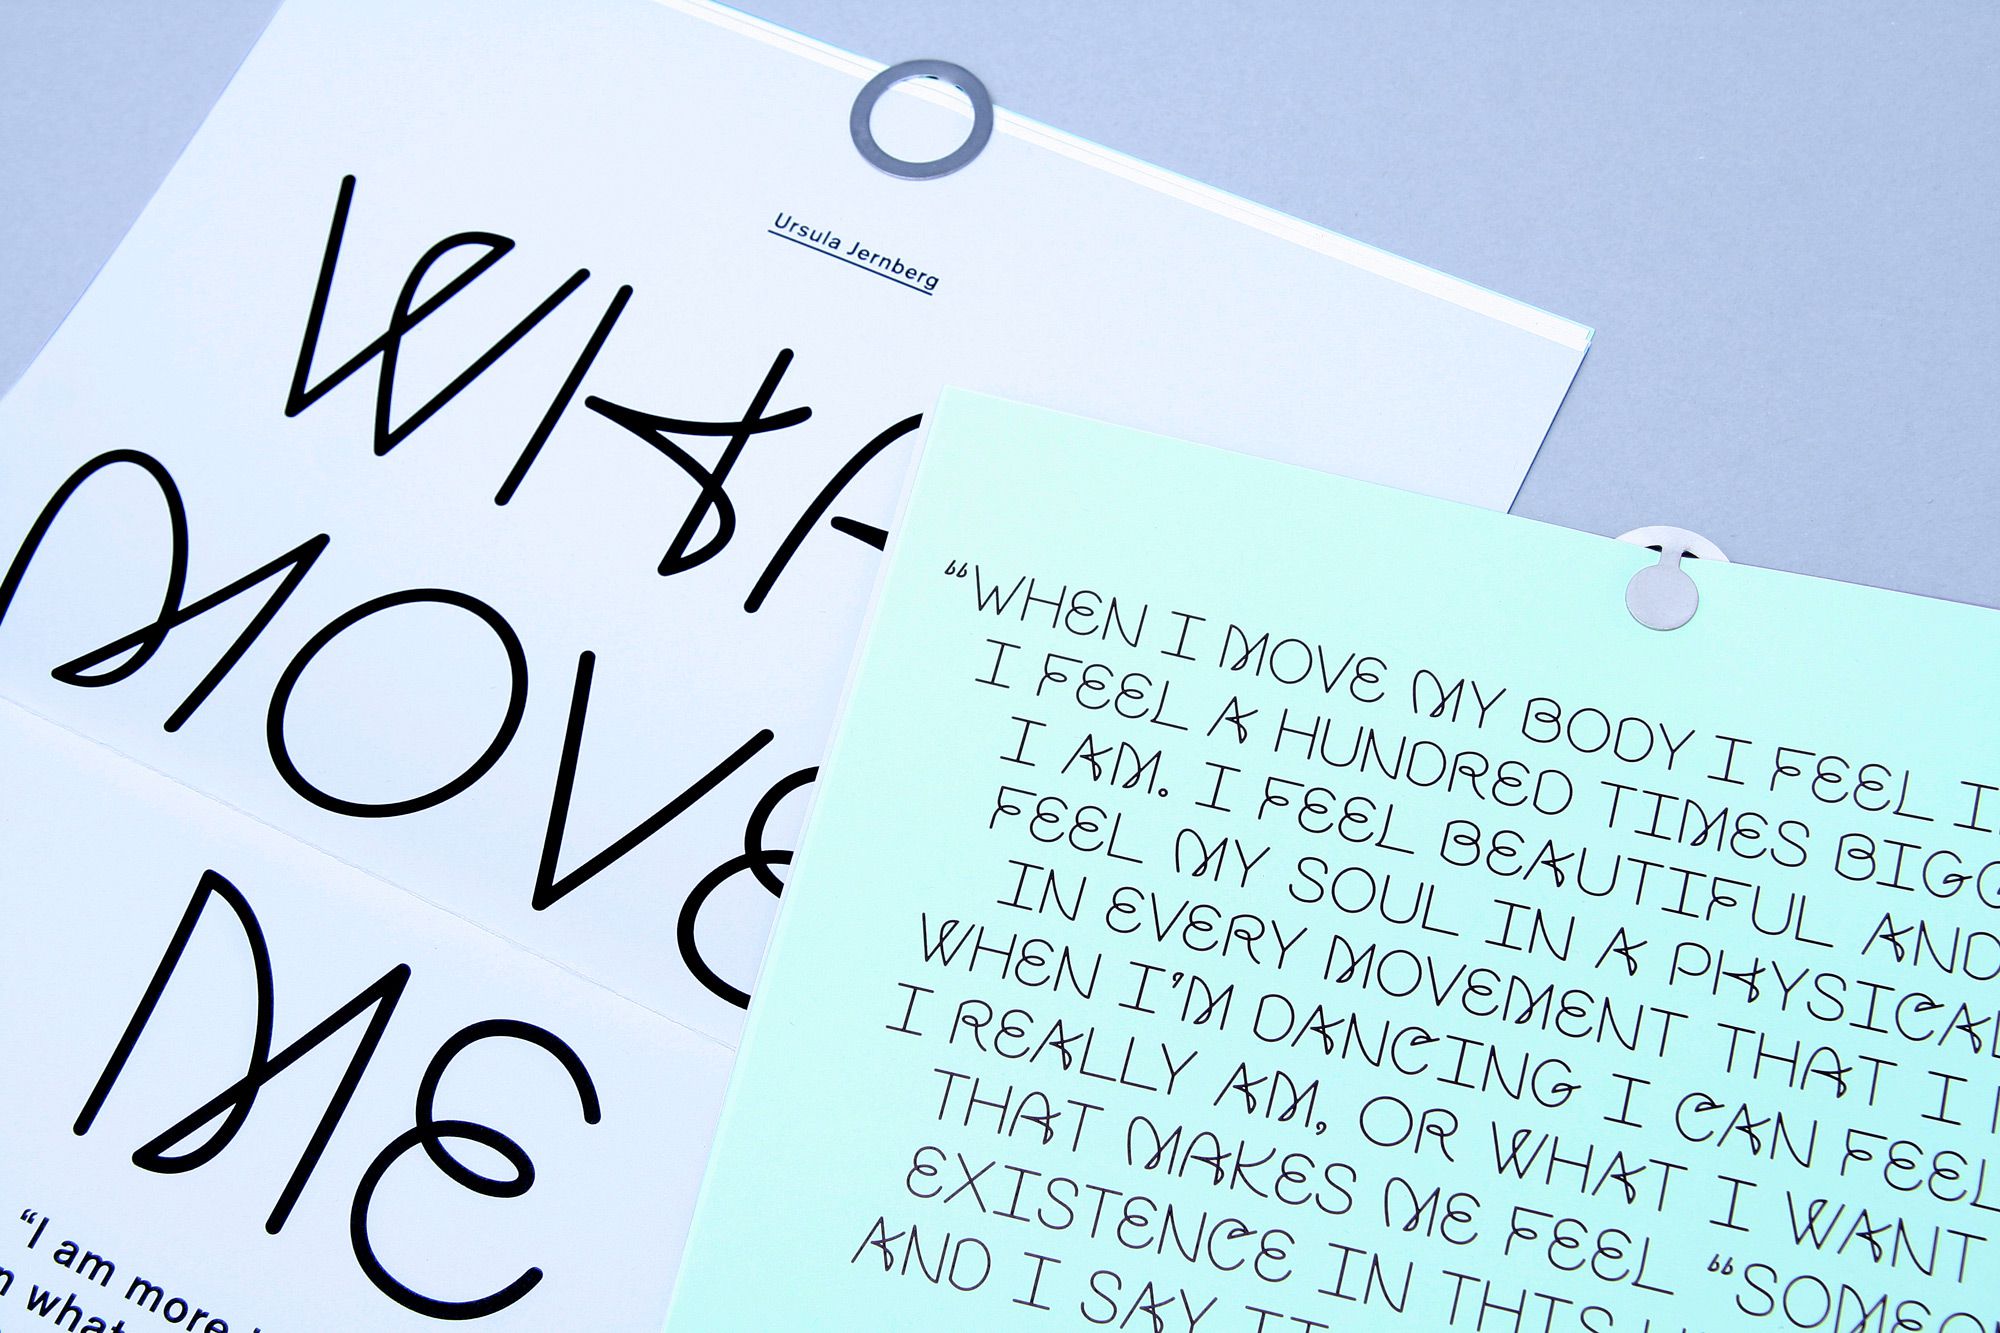 Ursula Jernberg
WHA
MOVE
ME
“I am more
what
“WHEN I MOVE MY BODY I FEEL
I FEEL A HUNDRED TIMES
I AM. I FEEL BEAUTIFUL AND
FEEL MY SOUL IN A PHYSICAL
IN EVERY MOVEMENT THAT I
WHEN I’M DANCING I CAN FEEL
I REALLY AM, OR WHAT I WANT
THAT MAKES ME FEEL
EXISTENCE IN THIS
AND I SAY